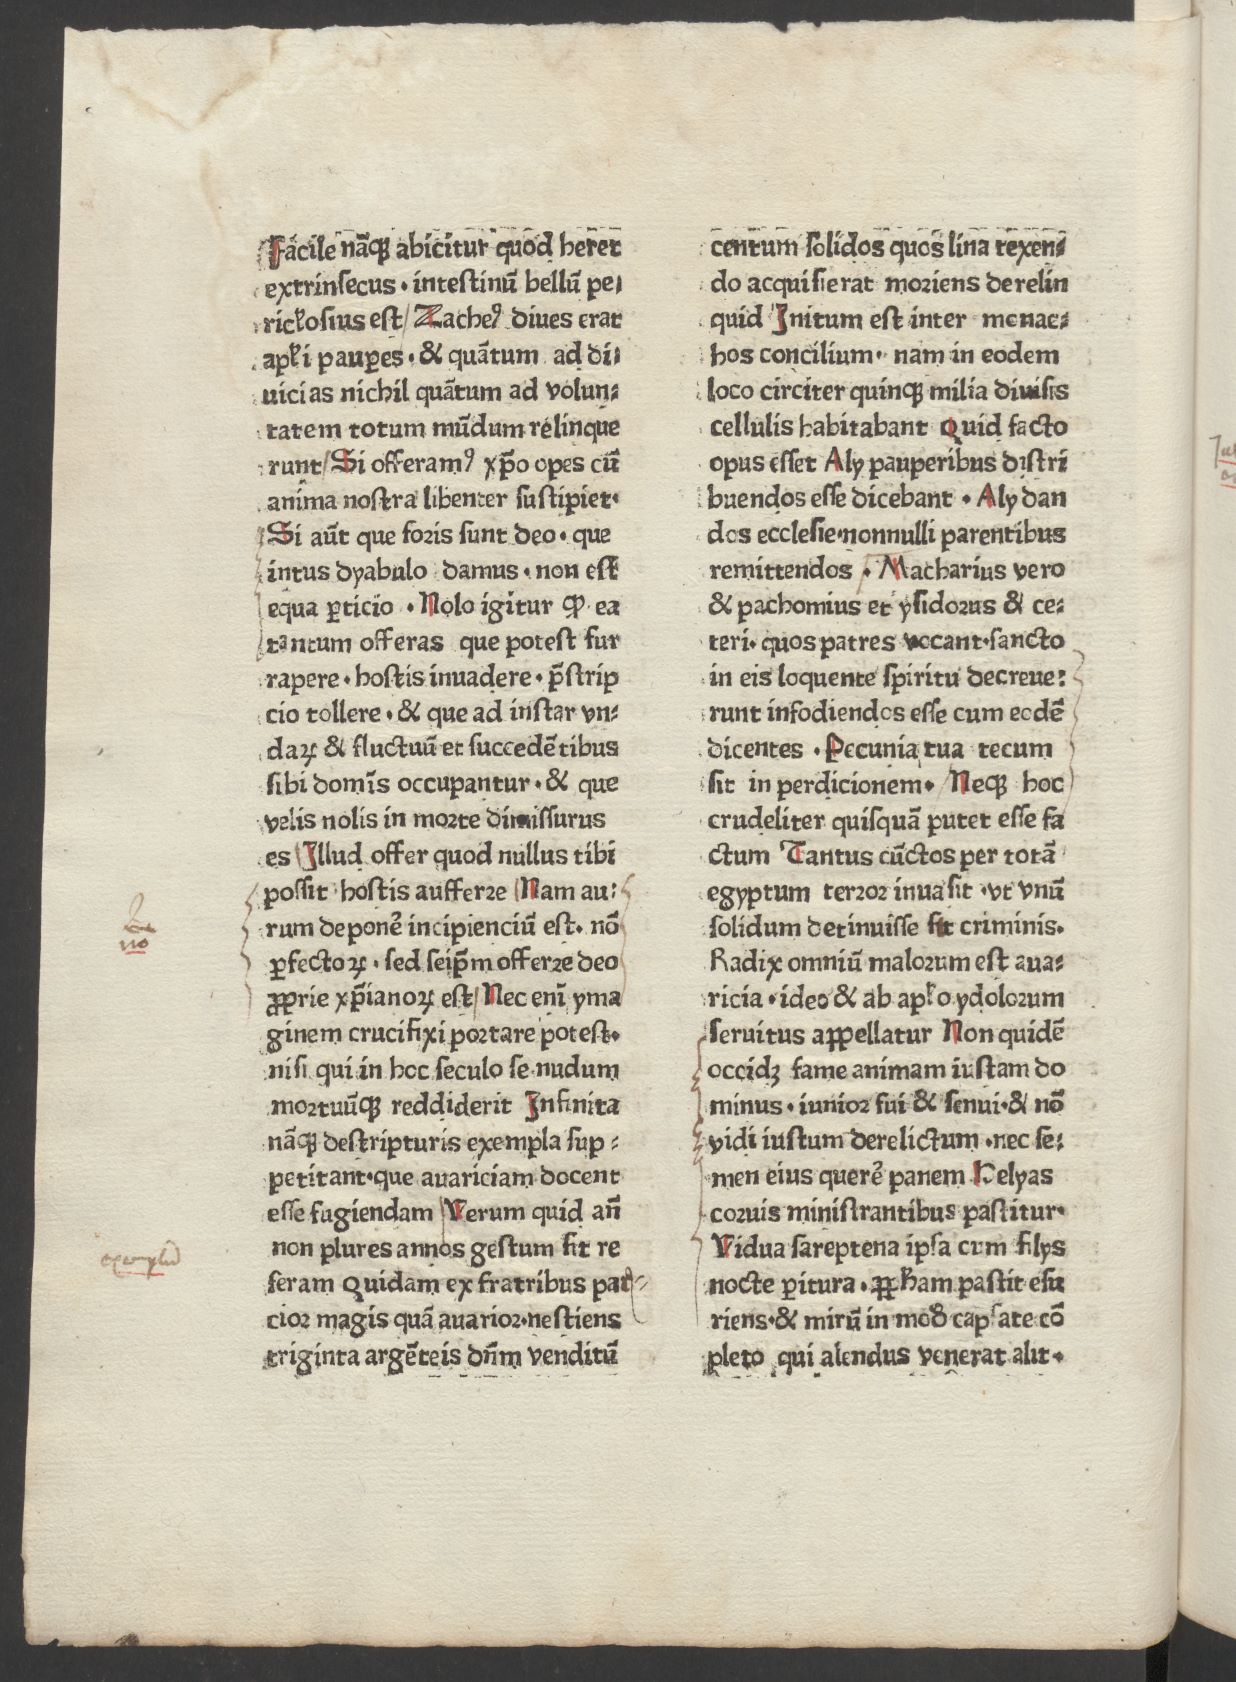 Facile nāqꝫ abicitur quod heret
extrinsecus · intestinū bellū pe⸗
rick̄osius est/ Zacheꝰ diues erat
apk̄i pauꝑes · & quātum ad di⸗
uicias nichil quātum ad volun⸗
tatem totum mūdum relinque
runt/ Si offeramꝰ xp̄o opes cū
anima nostra libenter sustipiet·
Si aūt que foris sunt deo · que
intus dyabulo damus · non est
equa ꝑticio · Nolo igitur ꝙ ea
tantum offeras que potest fur
rapere · hostis inuadere · p̄strip
cio tollere · & que ad instar vn⸗
daꝝ & fluctuū et succedētibus
sibi domīs occupantur · & que
velis nolis in morte dimissurus
es Illud offer quod nullus tibi
possit hostis aufferre Nam au⸗
rum deponē incipienciū est · nō
ꝑfectoꝝ · sed seip̄m offerre deo
ꝓprie xp̄ianoꝝ est/ Nec enī yma
ginem crucifixi portare potest·
nisi qui in hoc seculo se nudum
mortuūqꝫ reddiderit Infinita
nāqꝫ destripturis exempla sup⸗
petitant·que auariciam docent
esse fugiendam Verum quid an̄
non plures annos gestum sit re
feram Quidam ex fratribus par
cior magis quā auarior·nestiens
triginta argēteis dn̄m venditū
no
exemplū
centum solidos quos lina texen⸗
do acquisierat moriens derelin
quid Initum est inter monac⸗
hos concilium · nam in eodem
loco circiter quinqꝫ milia diuisis
cellulis habitabant Quid facto
opus esset Aly pauperibus distri
buendos esse dicebant · Aly dan
dos ecclesie·nonnulli parentibus
remittendos · Macharius vero
& pachomius et ysidorus & ce⸗
teri· quos patres vocant·sancto
in eis loquente spiritu decreue⸗
runt infodiendos esse cum eodē
dicentes · Pecunia tua tecum
sit in perdicionem · Neqꝫ hoc
crudeliter quisquā putet esse fa
ctum Tantus cūctos per totā
egyptum terror inuasit ·vt vnū
solidum detinuisse sit criminis·
Radix omniū malorum est aua⸗
ricia · ideo & ab apk̄o ydolorum
seruitus appellatur Non quidē
occidꝫ fame animam iustam do
minus · iunior fui & senui·& nō
vidi iustum derelictum ·nec se⸗
men eius querē panem Helyas
coruis ministrantibus pastitur·
Vidua sareptena ipsa cum filys
nocte ꝑitura · ꝓpk̄am pastit esu
riens·& mirū in mod̄ capsate cō
pleto qui alendus venerat alit·